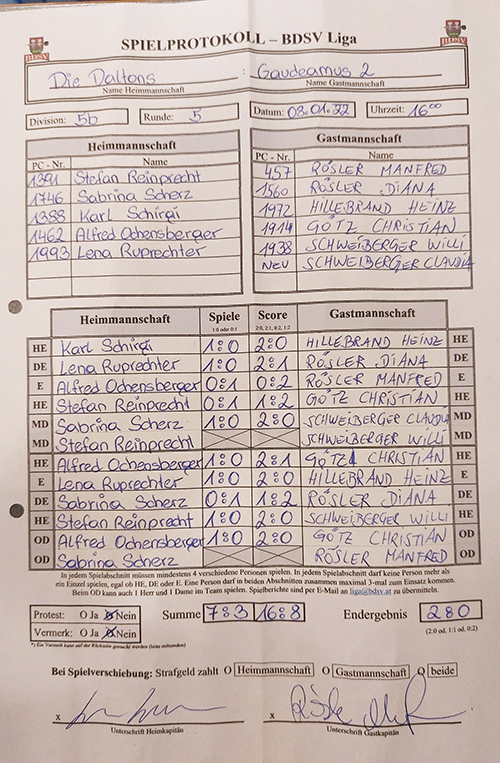 SPIELPROTOKOLL – BDSV Liga
BDSV BDSV
Die Daltons : Gaudeamus 2
Name Heimmannschaft Name Gastmannschaft
Division: 5b Runde: 5 Datum: 03.01.22 Uhrzeit: 16 00
Heimmannschaft Gastmannschaft
PC - Nr. Name PC - Nr. Name
1391 Stefan Reinprecht 457 RÖSLER MANFRED
1746 Sabrina Scherz 1560 RÖSLER DIANA
1388 Karl Schirgi 1972 HILLEBRAND HEINZ
1462 Alfred Ochensberger 1914 GÖTZ CHRISTIAN
1993 Lena Ruprechter 1938 SCHWEIBERGER WILLI
NEU SCHWEIBERGER CLAUDIA
Heimmannschaft Spiele Score Gastmannschaft
1:0 oder 0:1 2:0, 2:1, 0:2, 1:2
HE Karl Schirgi 1:0 2:0 HILLEBRAND HEINZ HE
DE Lena Ruprechter 1:0 2:1 RÖSLER DIANA DE
E Alfred Ochensberger 0:1 0:2 RÖSLER MANFRED E
HE Stefan Reinprecht 0:1 1:2 GÖTZ CHRISTIAN HE
MD Sabrina Scherz 1:0 2:0 SCHWEIBERGER CLAUDIA MD
MD Stefan Reinprecht SCHWEIBERGER WILLI MD
HE Alfred Ochensberger 1:0 2:1 GÖTZ CHRISTIAN HE
E Lena Ruprechter 1:0 2:0 HILLEBRAND HEINZ E
DE Sabrina Scherz 0:1 1:2 RÖSLER DIANA DE
HE Stefan Reinprecht 1:0 2:0 SCHWEIBERGER WILLI HE
OD Alfred Ochensberger 1:0 2:0 GÖTZ CHRISTIAN OD
OD Sabrina Scherz RÖSLER MANFRED OD
In jedem Spielabschnitt müssen mindestens 4 verschiedene Personen spielen. In jedem Spielabschnitt darf keine Person mehr als
ein Einzel spielen, egal ob HE, DE oder E. Eine Person darf in beiden Abschnitten zusammen maximal 3-mal zum Einsatz kommen.
Beim OD kann auch 1 Herr und 1 Dame im Team spielen. Spielberichte sind per E-Mail an liga@bdsv.at zu übermitteln.
Protest: O Ja O Nein Summe 7:3 16:8 Endergebnis 2:0
Vermerk: O Ja O Nein (2:0 od. 1:1 od. 0:2)
*) Ein Vermerk kann auf der Rückseite gemacht werden (bitte ankreuzen)
Bei Spielverschiebung: Strafgeld zahlt O Heimmannschaft O Gastmannschaft O beide
x x
Unterschrift Heimkapitän Unterschrift Gastkapitän